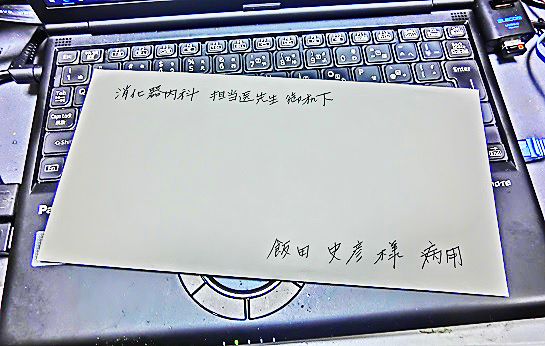 消化器内科 担当医先生 御机下
飯田 史彦 様 病用
ELECOM
Enter